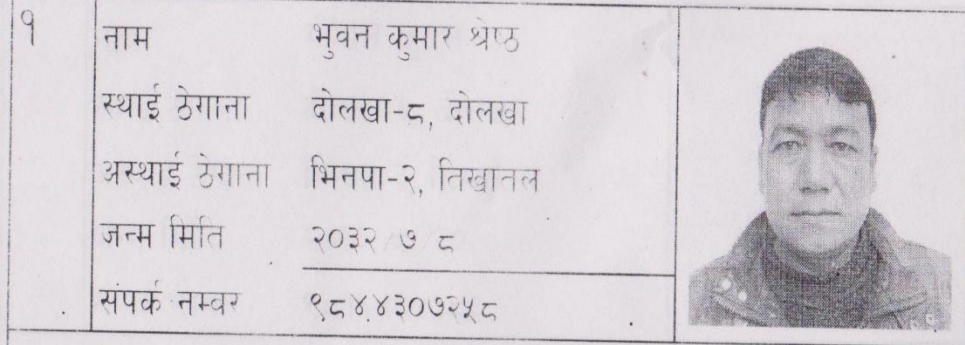 १
नाम भुवन कुमार श्रेष्ठ
स्थाई ठेगाना दोलखा-८, दोलखा
अस्थाई ठेगाना भिनपा-२, तिखातल
जन्म मिति २०३२/७/८
संपर्क नम्वर ९८४४३०७२५८